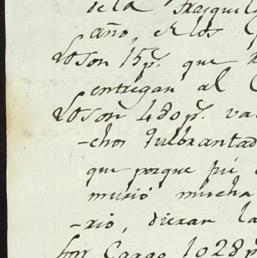 de la Trasquil
año, de los
Yt. Son 15p.s que
entregan al C
Yt. Son 480p.s va
-chos quebrantad
que porque fué
murió mucha
-rio, dieran la
Son Cargo 1028p